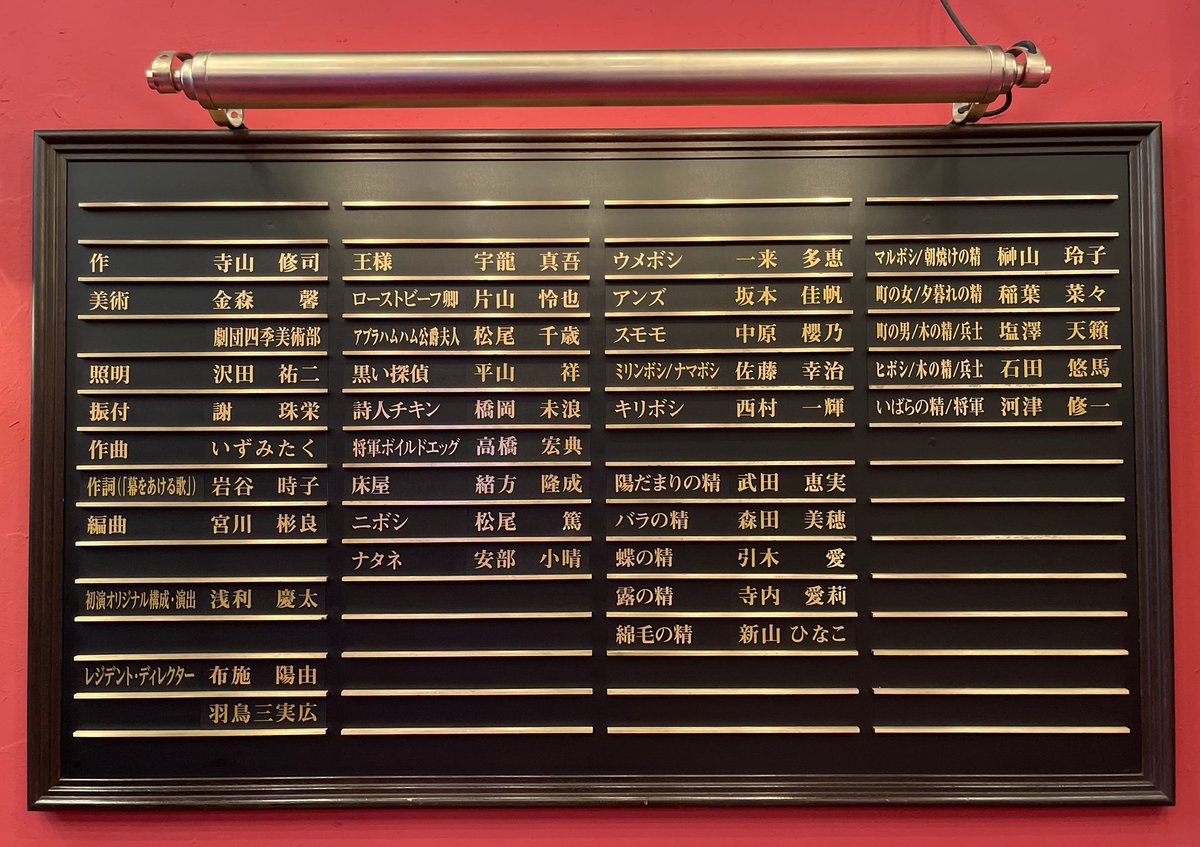 作 寺山 修司
美術 金森 馨
劇団四季美術部
照明 沢田 祐二
振付 謝 珠栄
作曲 いずみたく
作詞(「幕をあける歌」) 岩谷 時子
編曲 宮川 彬良
初演オリジナル構成・演出 浅利 慶太
レジデント・ディレクター 布施 陽由
羽鳥三実広
王様 宇龍 真吾
ローストビーフ卿 片山 怜也
アブラハムハム公爵夫人 松尾 千歳
黒い探偵 平山 祥
詩人チキン 橋岡 未浪
将軍ボイルドエッグ 高橋 宏典
床屋 緒方 隆成
ニボシ 松尾 篤
ナタネ 安部 小晴
ウメボシ 一来 多恵
アンズ 坂本 佳帆
スモモ 中原 櫻乃
ミリンボシ/ナマボシ 佐藤 幸治
キリボシ 西村 一輝
陽だまりの精 武田 恵実
バラの精 森田 美穂
蝶の精 引木 愛
露の精 寺内 愛莉
綿毛の精 新山 ひなこ
マルボシ/朝焼けの精 榊山 玲子
町の女/夕暮れの精 稲葉 菜々
町の男/木の精/兵士 塩澤 天籟
ヒボシ/木の精/兵士 石田 悠馬
いばらの精/将軍 河津 修一